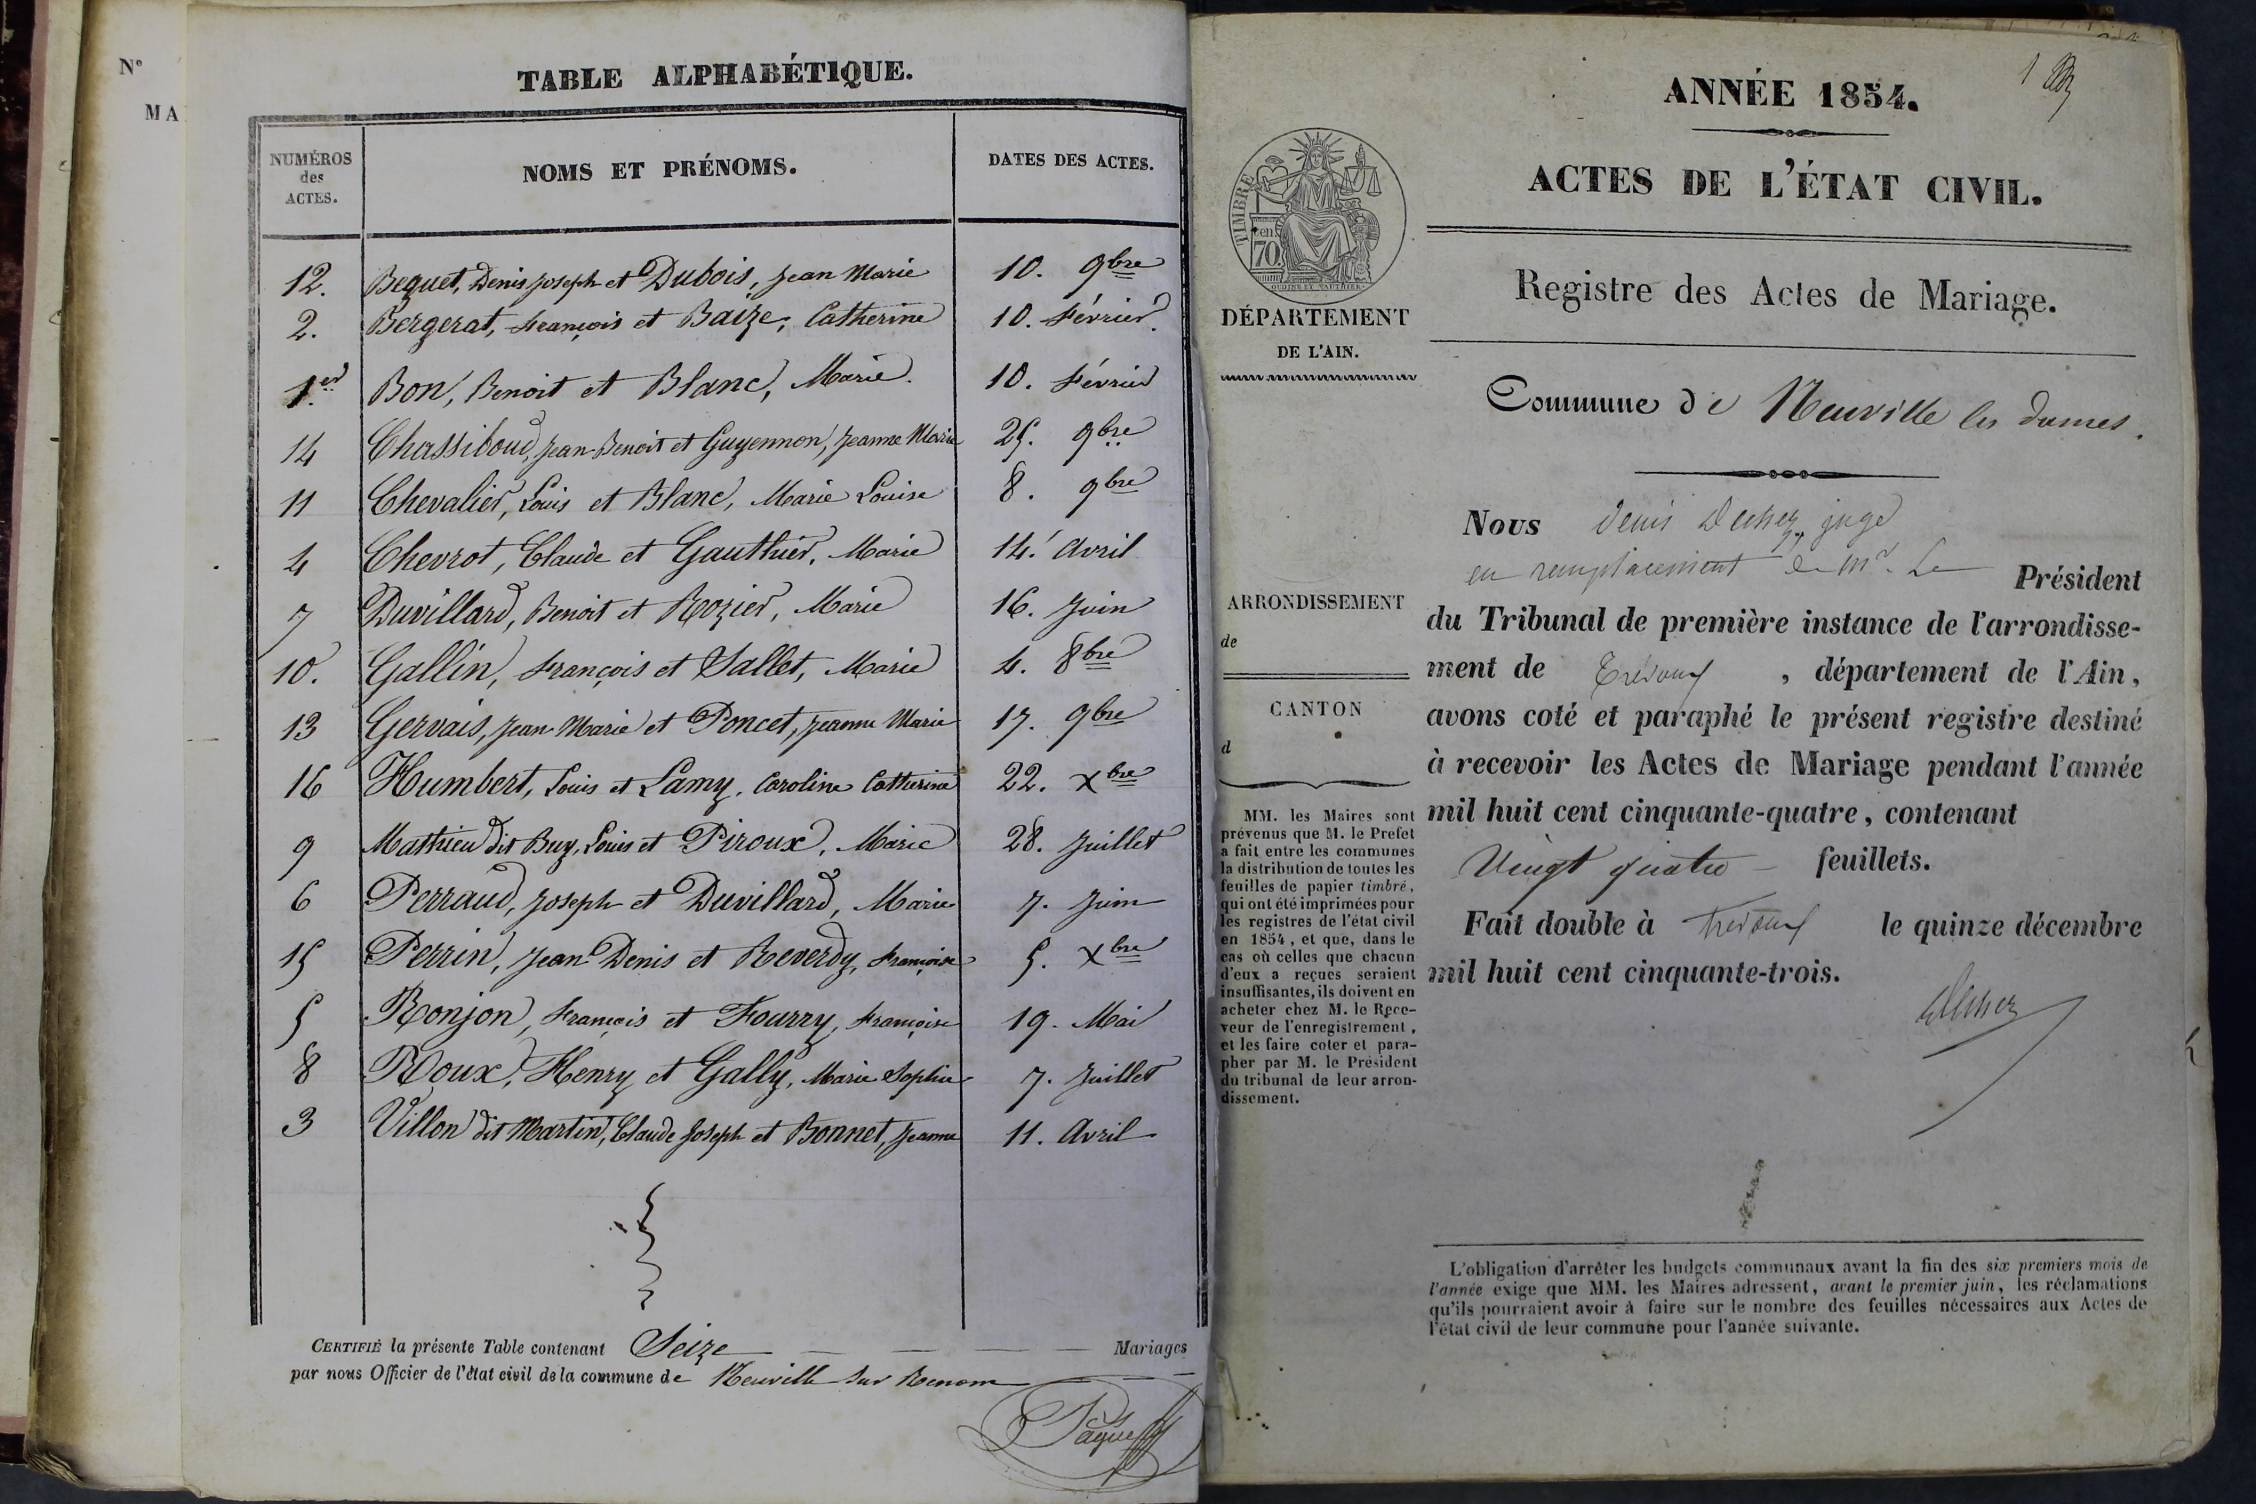 Nº
MA
TABLE ALPHABÉTIQUE.
NUMÉROS des ACTES. NOMS ET PRÉNOMS. DATES DES ACTES.
12. Bequet, Denis Joseph et Dubois, Jean Marie 10. 9bre
2. Bergerat, François et Baize, Catherine 10. Février.
1er Bon, Benoit et Blanc, Marie. 10. Février
14 Chassiboud, Jean-Benoit et Guyennon, Jeanne Marie 25. 9bre
11 Chevalier, Louis et Blanc, Marie Louise 8. 9bre
4 Chevrot, Claude et Gauthier, Marie 14. Avril
7 Duvillard, Benoit et Rozier, Marie 16. Juin
10. Gallin, François et Sallet, Marie 4. 8bre
13 Gervais, Jean Marie et Poncet, Jeanne Marie 17. 9bre
16 Humbert, Louis et Lamy, Caroline Catherine 22. Xbre
9 Mathieu dit Buy, Louis et Piroux, Marie 28. Juillet
6 Perraud, Joseph et Duvillard, Marie 7. Juin
15 Perrin, Jean Denis et Reverdy, Françoise 5. Xbre
5 Ronjon, François et Fourry, Françoise 19. Mai
8 Roux, Henry et Gally, Marie Sophie 7. Juillet
3 Villon dit Martin, Claude Joseph et Bonnet, Jeanne 11. Avril
CERTIFIÉ la présente Table contenant Seize Mariages
par nous Officier de l'état civil de la commune de Neuville sur Renom
1
ANNÉE 1854.
ACTES DE L'ÉTAT CIVIL.
Registre des Actes de Mariage.
TIMBRE
cen. 70
DÉPARTEMENT
DE L'AIN.
Commune de Neuville les dames.
ARRONDISSEMENT
de
CANTON
d
MM. les Maires sont
prévenus que M. le Préfet
a fait entre les communes
la distribution de toutes les
feuilles de papier timbré,
qui ont été imprimées pour
les registres de l'état civil
en 1854, et que, dans le
cas où celles que chacun
d'eux a reçues seraient
insuffisantes, ils doivent en
acheter chez M. le Rece-
veur de l'enregistrement,
et les faire coter et para-
pher par M. le Président
du tribunal de leur arron-
dissement.
Nous Denis juge
en remplacement de Mr. Le Président
du Tribunal de première instance de l'arrondisse-
ment de Trévoux, département de l'Ain,
avons coté et paraphé le présent registre destiné
à recevoir les Actes de Mariage pendant l'année
mil huit cent cinquante-quatre, contenant
Vingt quatre feuillets.
Fait double à Trévoux le quinze décembre
mil huit cent cinquante-trois.
L'obligation d'arrêter les budgets communaux avant la fin des six premiers mois de
l'année exige que MM. les Maires adressent, avant le premier juin, les réclamations
qu'ils pourraient avoir à faire sur le nombre des feuilles nécessaires aux Actes de
l'état civil de leur commune pour l'année suivante.